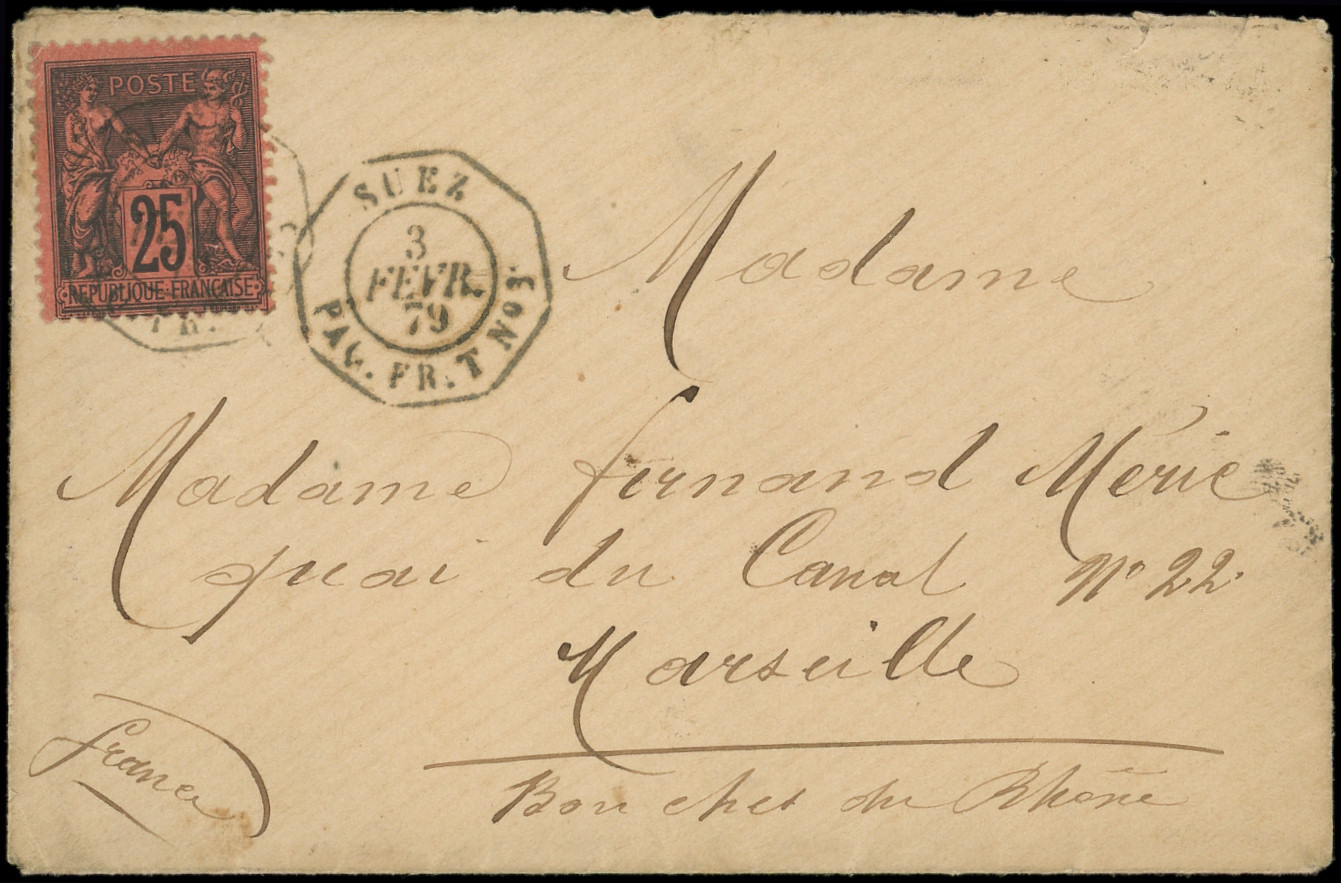 POSTE
25
REPUBLIQUE FRANÇAISE
SUEZ
3
FEVR.
79
PAQ. FR. T No 3
Madame
Madame fernand Méric
quai du Canal N° 22.
Marseille
france
Bou ches du Rhône